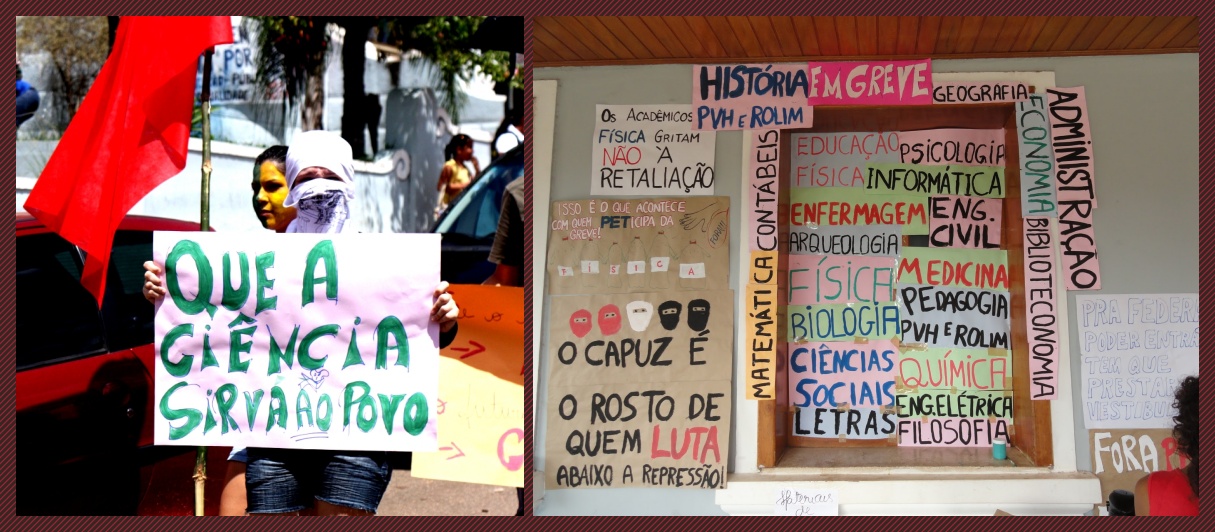 QUE A
CIÊNCIA
SIRVA AO POVO
HISTÓRIA
PVH E ROLIM
EM GREVE
GEOGRAFIA
OS ACADÊMICOS
FÍSICA GRITAM
NÃO À
RETALIAÇÃO
ISSO É O QUE ACONTECE
COM QUEM PETICIPA DA
GREVE!
FÍSICA
O CAPUZ É
O ROSTO DE
QUEM LUTA
ABAIXO A REPRESSÃO!
CONTÁBEIS
MATEMÁTICA
EDUCAÇÃO
FÍSICA
PSICOLOGIA
INFORMÁTICA
ENFERMAGEM
ENG.
CIVIL
ARQUEOLOGIA
FÍSICA
MEDICINA
BIOLOGIA
PEDAGOGIA
PVH E ROLIM
CIÊNCIAS
SOCIAIS
QUÍMICA
LETRAS
ENG. ELÉTRICA
FILOSOFIA
ECONOMIA
BIBLIOTECONOMIA
ADMINISTRAÇÃO
PRA FEDERAL
PODER ENTRA
TEM QUE
PRESTAR
VESTIBU
FORA
Materiais
de